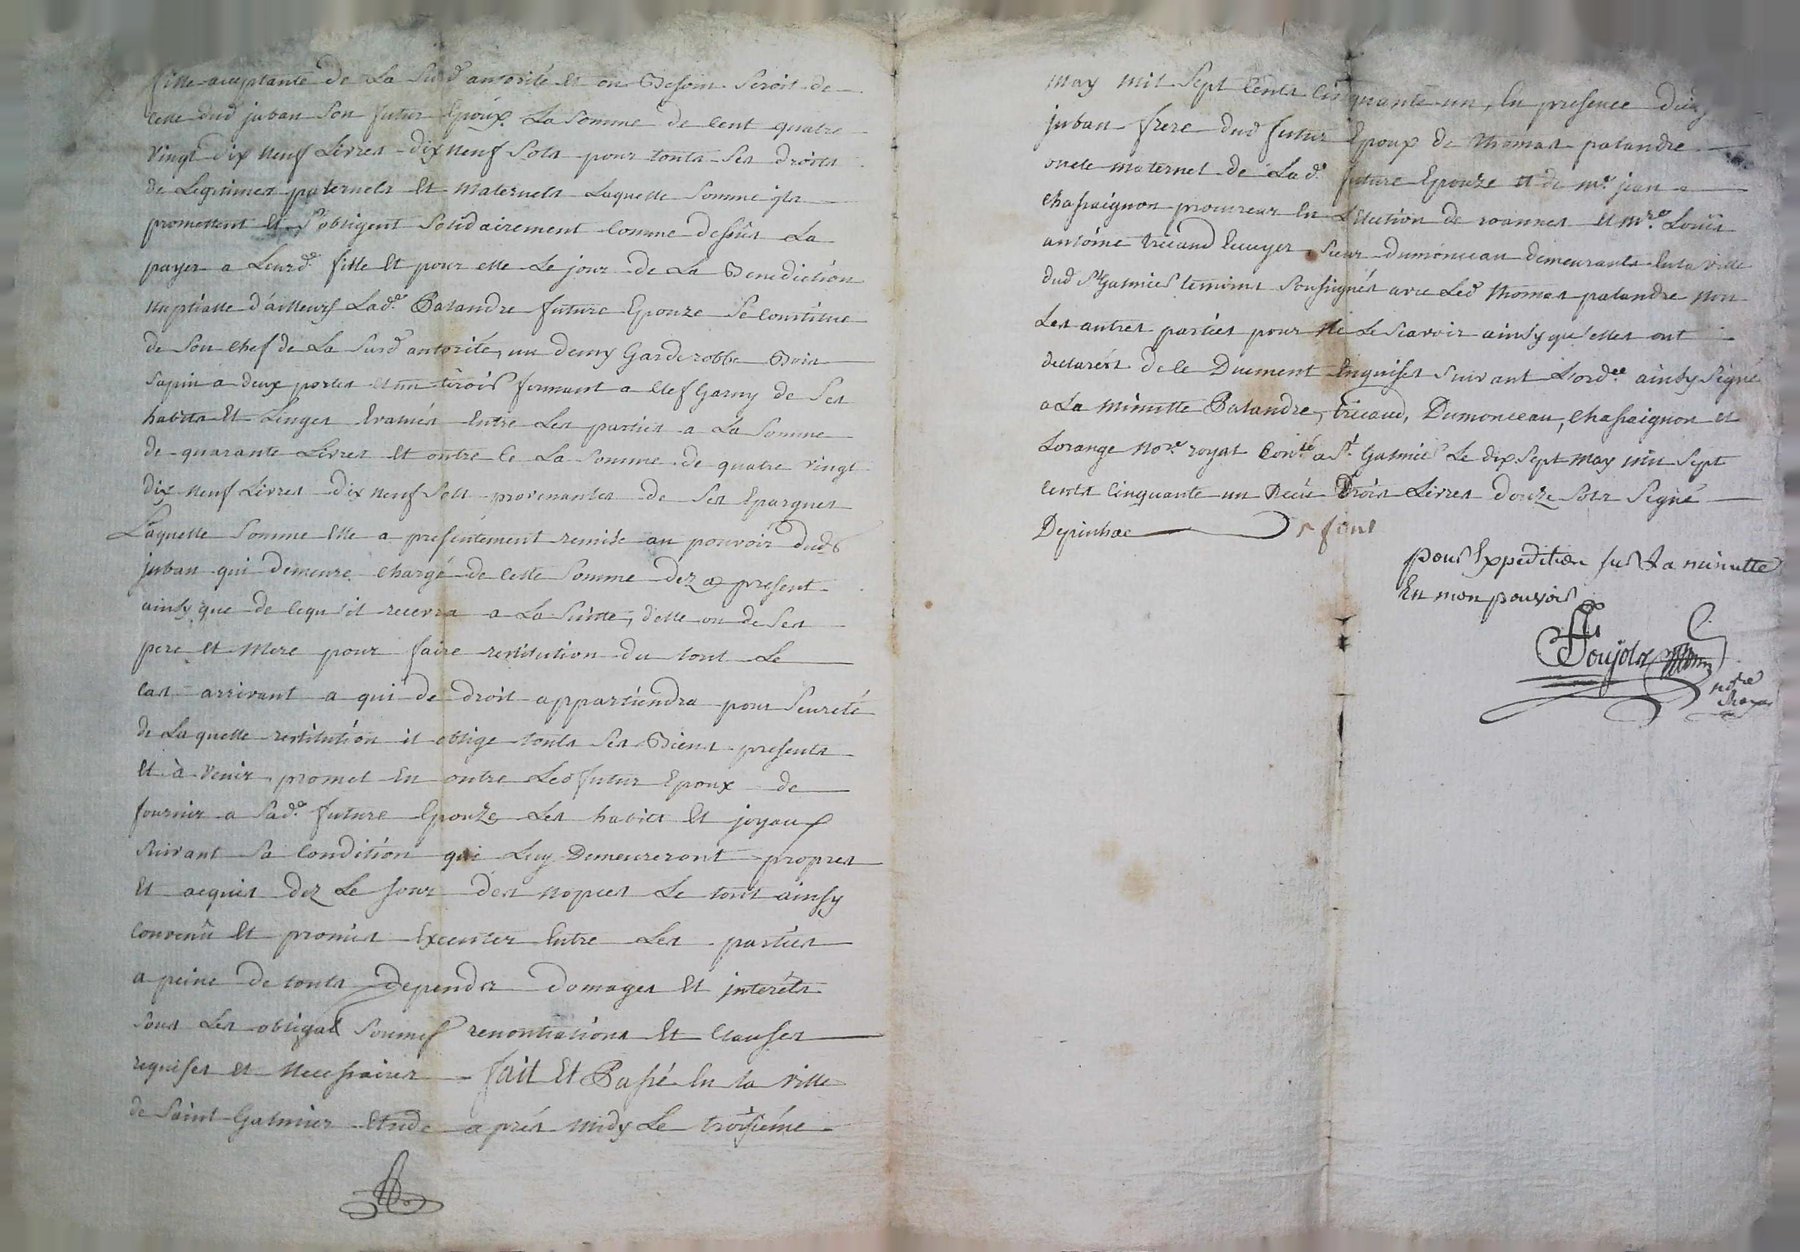 fille acceptante de La Susd autorité Et en Besoin Seroit de
Celle dud juban Son futur Epoux La Somme de Cent quatre
Vingt dix Neuf Livres dix Neuf Sols pour touts Ses droits
de Legitimes paternels Et Maternels Laquelle Somme jls
promettent Et S'obligent Solidairement Comme dessus La
payer a Leurd. fille Et pour elle Le jour de La Benediction
Nuptialle d'ailleurs Lad. Palandre future Epouze Se Constitue
de Son Chef de La Susd autorité, un demy Garderobbe Bois
Sapin a deux portes et un tirois fermant a Clef Garny de Ses
habits Et Linges Evalués Entre Les parties a La Somme
de quarante Livres Et outre Ce La Somme de quatre Vingt
dix Neuf Livres dix neuf Sols provenantes de Ses Epargnes
Laquelle Somme Elle a presentement remise au pouvoir dud
juban qui demeure Chargé de Cette Somme dez a present
ainsy que de Cequ'il recevra a La Suitte, d'elle ou de Ses
pere et Mere pour faire restitution du tout Le
Cas arrivant a qui de droit appartiendra pour Seureté
de Laquelle restitution il oblige touts Ses Biens presents
Et à Venir, promet En outre Led futur Epoux de
fournir a Sad. future Epouze Les habits Et joyaux
Suivant Sa Condition qui Luy Demeureront propres
Et acquis dez Le Jour des Nopces Le tout ainsy
Convenu Et promis Executer Entre Les parties
a peine de touts depends Domages Et interéts
Sous Les obligaõ Soumis renontiations Et Clauses
requises et Necessaires fait Et Passé En la Ville
de Saint Galmier Etude après Midy Le troisiéme
May Mil Sept Cents Cinquante un, En presence dud
juban frere dud futur Epoux de thomas palandre
oncle maternel de Lad. future Epouze et de mr. jean
Chassaignon procureur En L'Election de roannes et Mr. Louis
antoine tricaud Ecuyer Sieur dumonceau demeurants En la Ville
dud St Galmier temoins Soussignés avec Led thomas palandre Non
Les autres parties pour Ne Le Scavoir ainsy qu'elles ont
declarés de Ce Duement Enquises Suivant L'ordce ainsy Signé
a La Minutte Palandre, tricaud, Dumonceau, Chassaignon et
Lorange Nore. royal Contlé a St. Galmier Le dix Sept May Mil Sept
Cents Cinquante un Recu trois Livres douze Sols Signé
Depinhac
pour Expedition sur La minutte
En mon pouvoir
Poujolz
notre
Royal